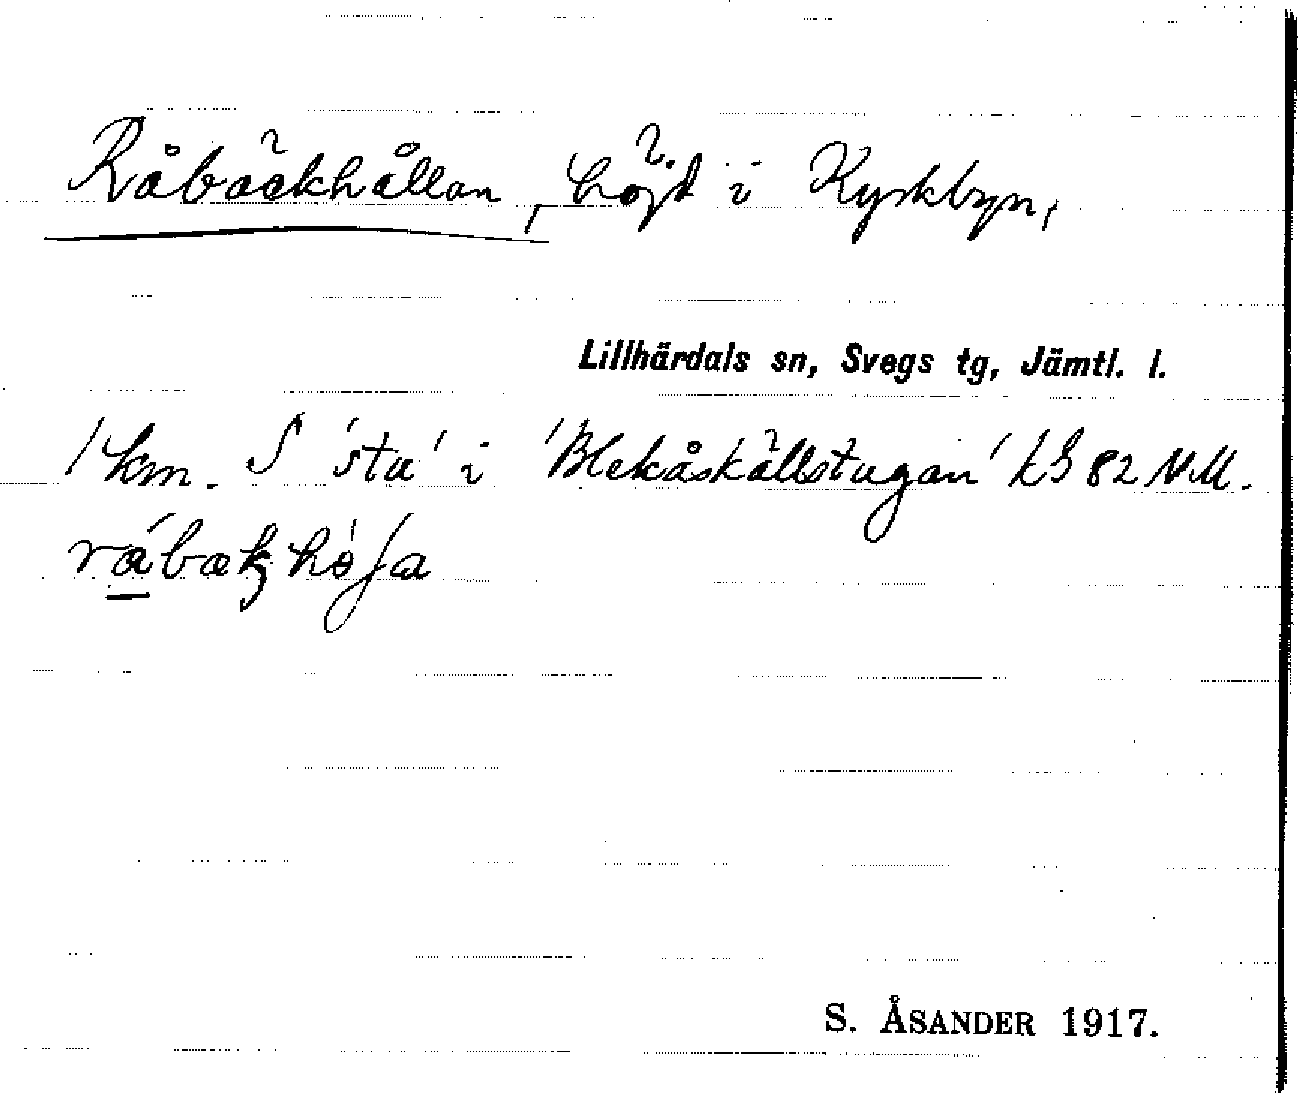 Råbäckhållan, höjd i Kyrkbyn,
Lillhärdals sn, Svegs tg, Jämtl. l.
1 km. S 'stu' i 'Blekåskällstugan' LS 82 NM.
S. ÅSANDER 1917.